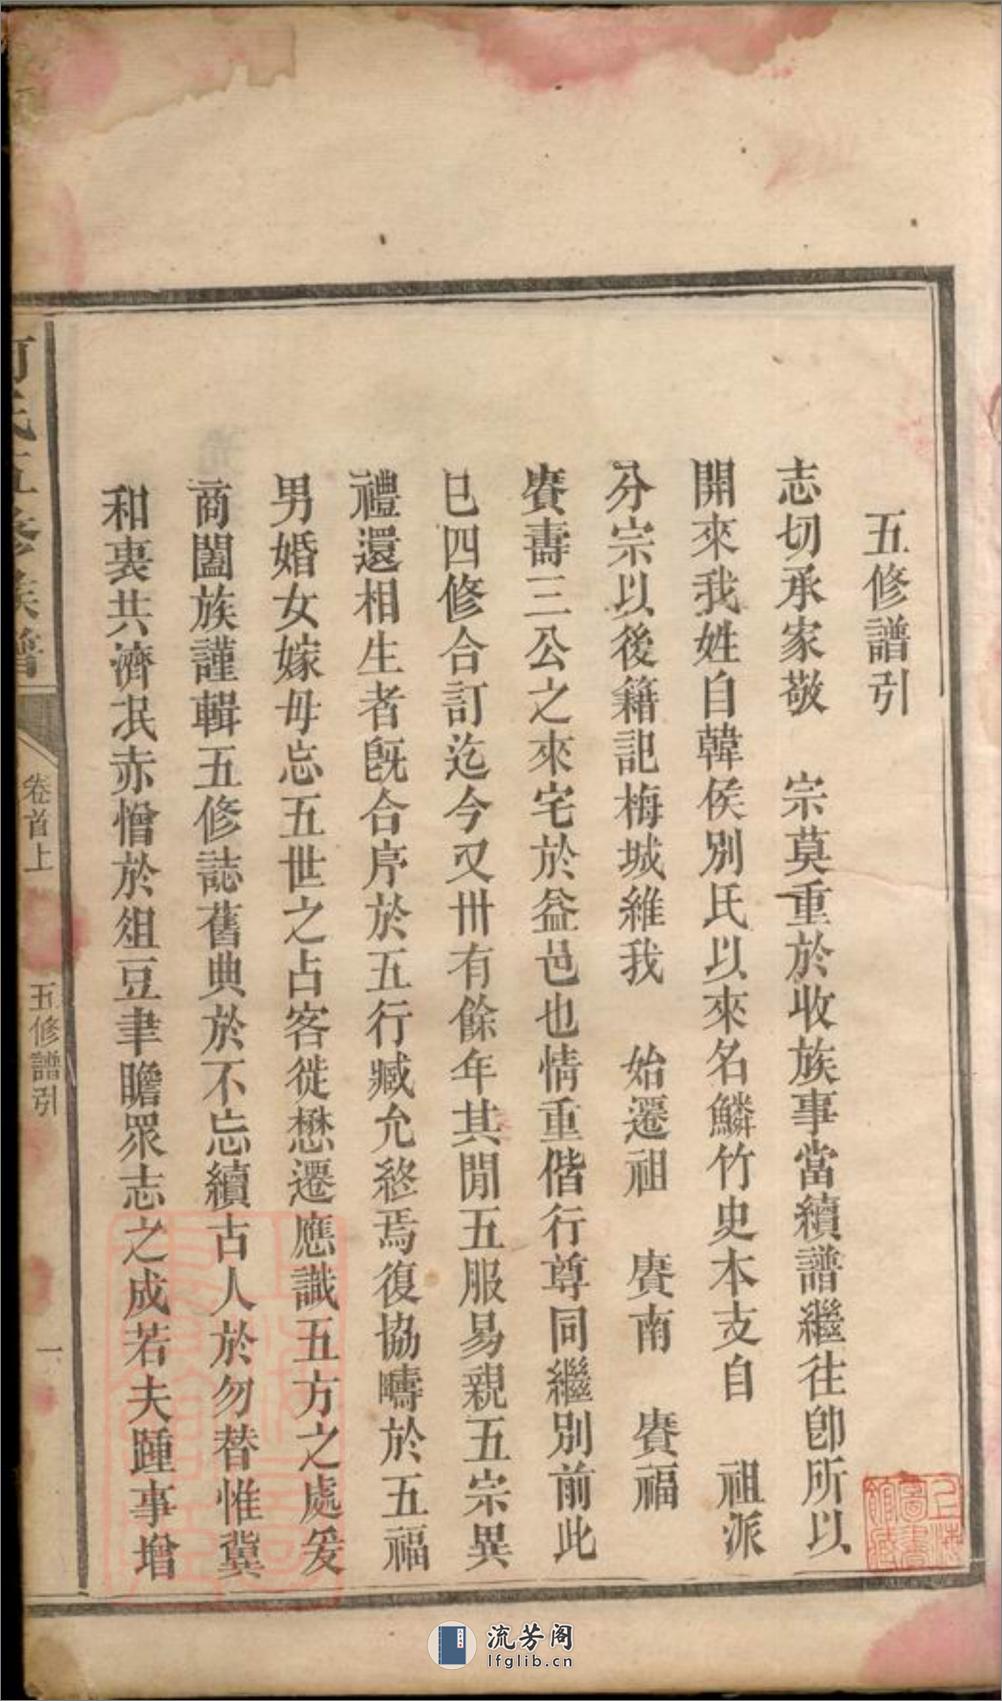 五修譜引
志切承家敬　宗莫重於收族事當續譜繼往卽所以
開來我姓自韓侯別氏以來名鱗竹史本支自　祖派
分宗以後籍記梅城維我　始遷祖　賡南　賡福
賡壽三公之來宅於益邑也情重偕行尊同繼別前此
巳四修合訂迄今又卅有餘年其閒五服易親五宗異
禮還相生者旣合序於五行臧允終焉復協疇於五福
男婚女嫁毋忘五世之占客徙懋遷應識五方之處爰
商闔族謹輯五修誌舊典於不忘續古人於勿替惟冀
和衷共濟泯赤憎於俎豆聿瞻眾志之成若夫踵事增
何氏五修族譜
卷首上
五修譜引
一
上海圖書館藏
流芳阁
lfglib.cn